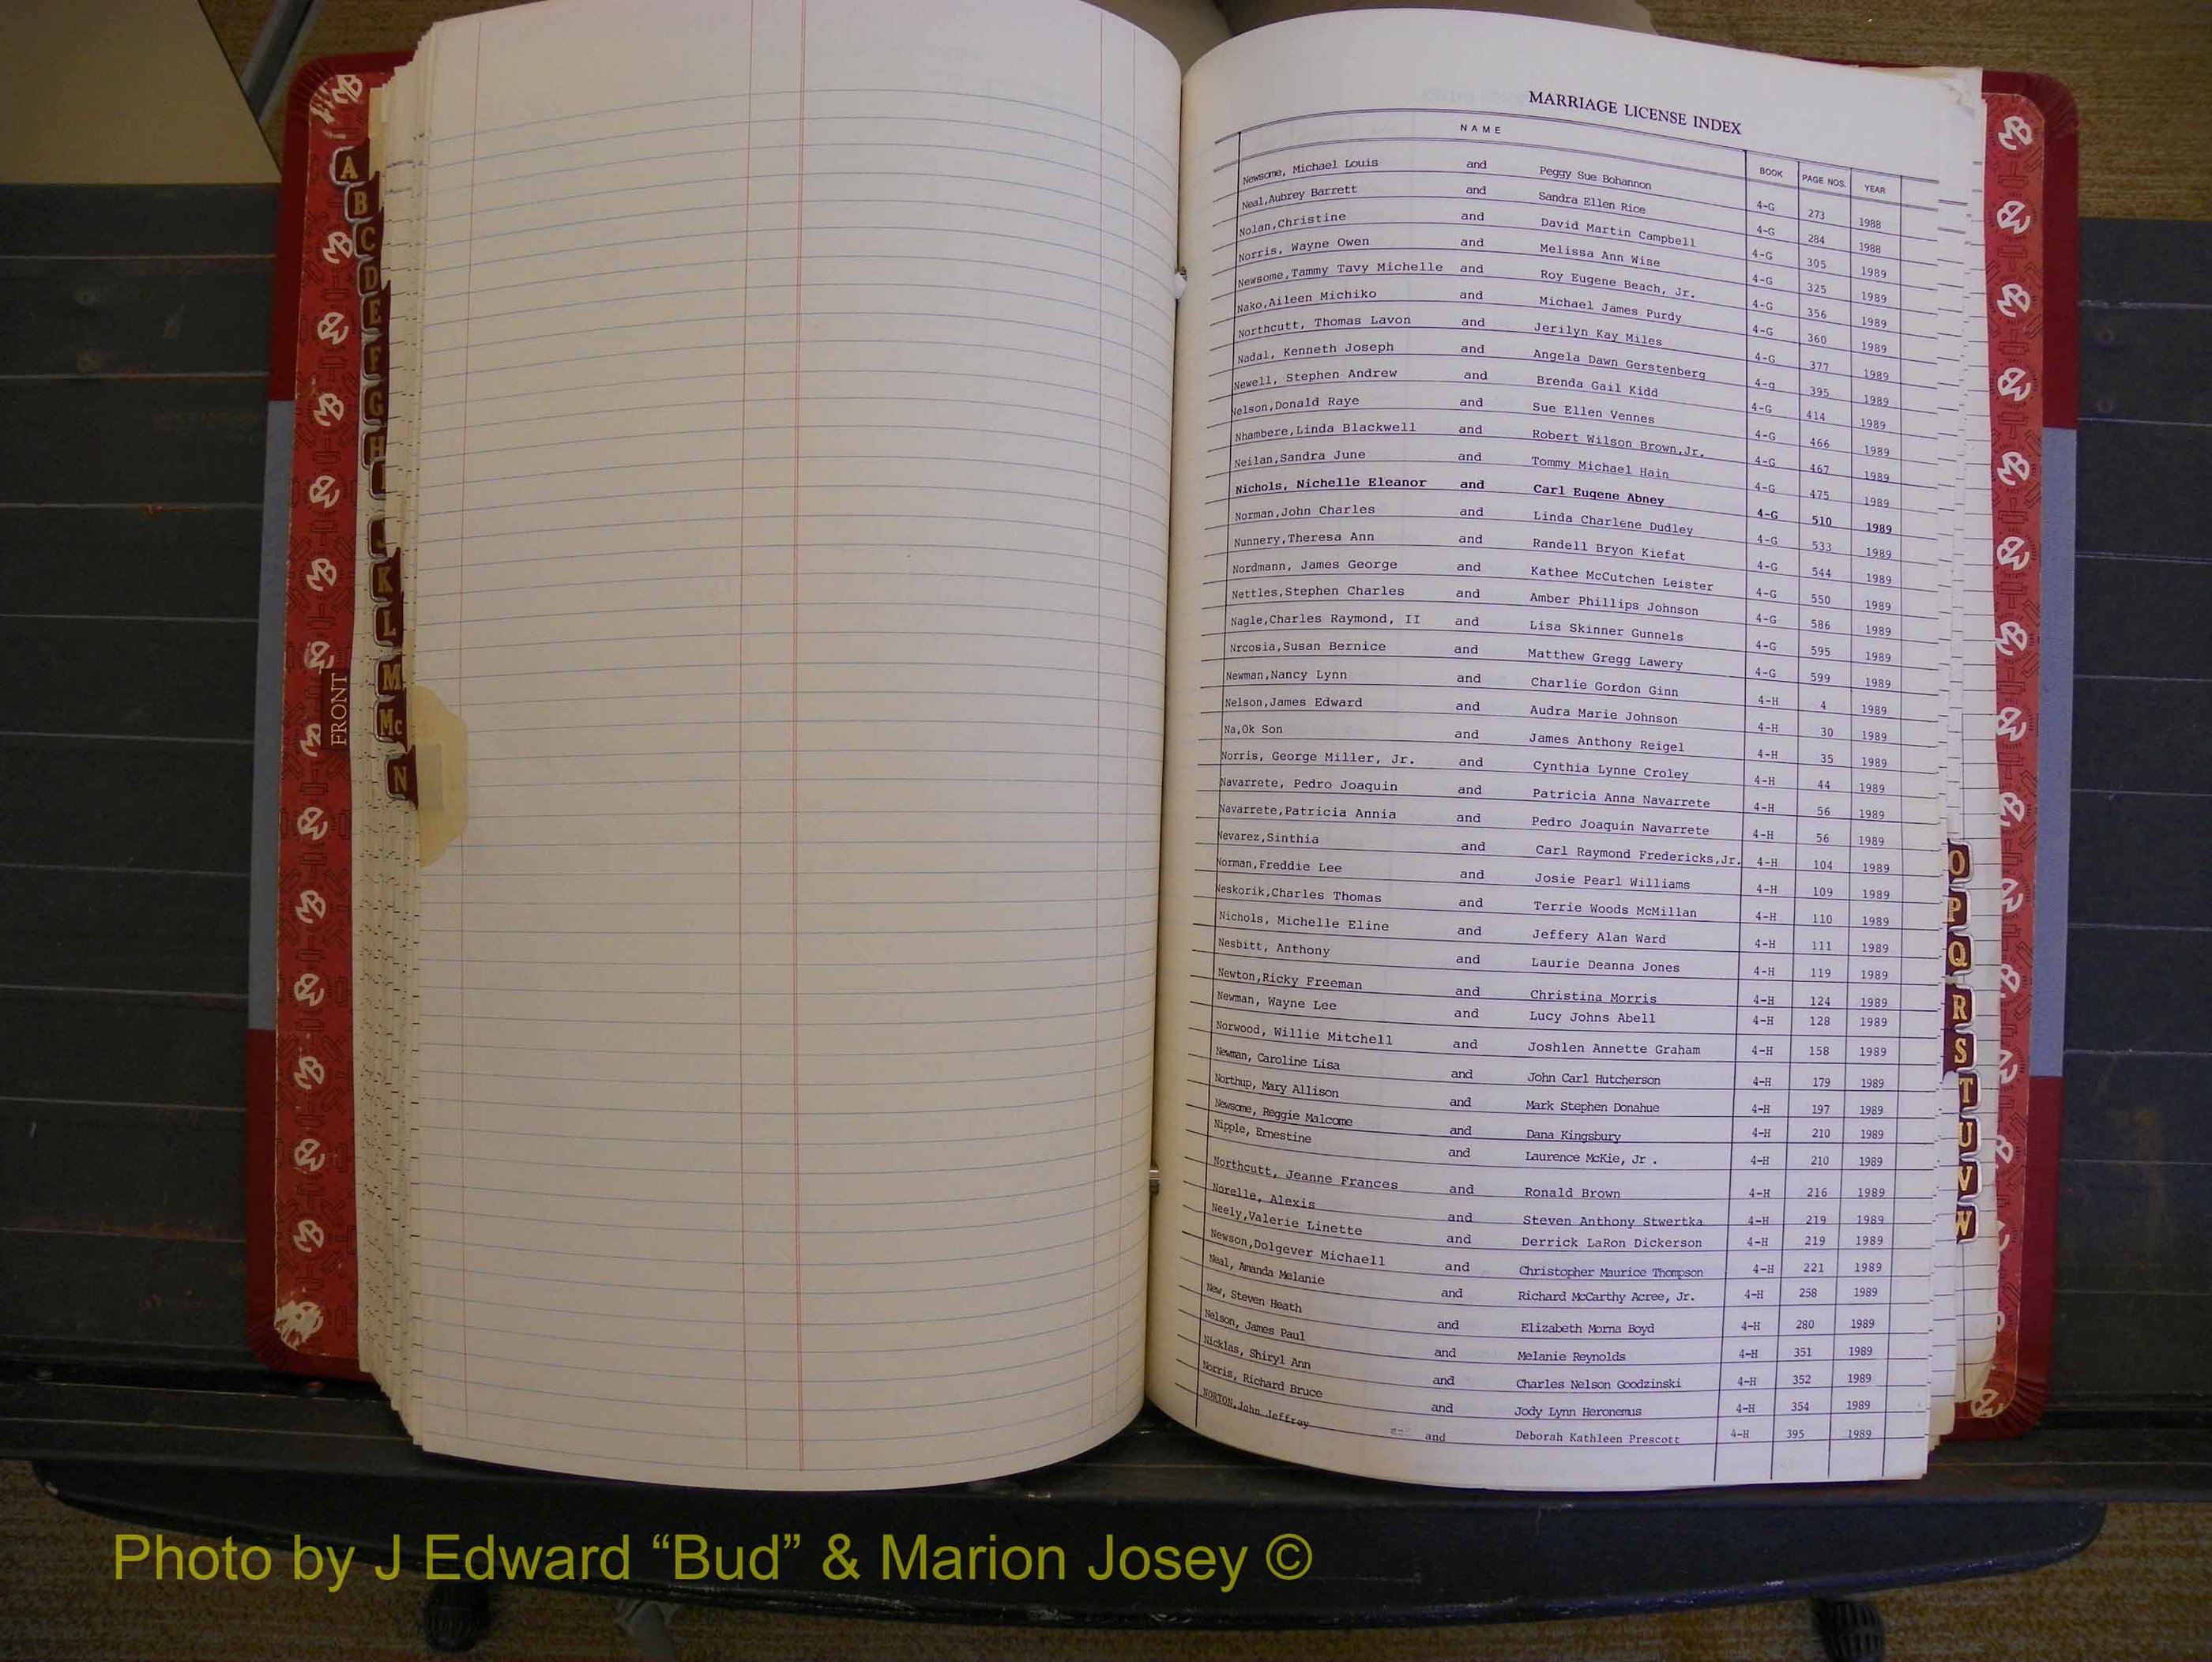 MARRIAGE LICENSE INDEX
NAME BOOK PAGE NOS. YEAR
Newsome, Michael Louis and Peggy Sue Bohannon 4-G 273 1988
Neal,Aubrey Barrett and Sandra Ellen Rice 4-G 284 1988
Nolan,Christine and David Martin Campbell 4-G 305 1989
Norris, Wayne Owen and Melissa Ann Wise 4-G 325 1989
Newsome,Tammy Tavy Michelle and Roy Eugene Beach, Jr. 4-G 356 1989
Nako,Aileen Michiko and Michael James Purdy 4-G 360 1989
Northcutt, Thomas Lavon and Jerilyn Kay Miles 4-G 377 1989
Nadal, Kenneth Joseph and Angela Dawn Gerstenberg 4-g 395 1989
Newell, Stephen Andrew and Brenda Gail Kidd 4-G 414 1989
Nelson,Donald Raye and Sue Ellen Vennes 4-G 466 1989
Nhambere,Linda Blackwell and Robert Wilson Brown,Jr. 4-G 467 1989
Neilan,Sandra June and Tommy Michael Hain 4-G 475 1989
Nichols, Nichelle Eleanor and Carl Eugene Abney 4-G 510 1989
Norman,John Charles and Linda Charlene Dudley 4-G 533 1989
Nunnery,Theresa Ann and Randell Bryon Kiefat 4-G 544 1989
Nordmann, James George and Kathee McCutchen Leister 4-G 550 1989
Nettles,Stephen Charles and Amber Phillips Johnson 4-G 586 1989
Nagle,Charles Raymond, II and Lisa Skinner Gunnels 4-G 595 1989
Nrcosia,Susan Bernice and Matthew Gregg Lawery 4-G 599 1989
Newman,Nancy Lynn and Charlie Gordon Ginn 4-H 4 1989
Nelson,James Edward and Audra Marie Johnson 4-H 30 1989
Na,Ok Son and James Anthony Reigel 4-H 35 1989
Norris, George Miller, Jr. and Cynthia Lynne Croley 4-H 44 1989
Navarrete, Pedro Joaquin and Patricia Anna Navarrete 4-H 56 1989
Navarrete,Patricia Annia and Pedro Joaquin Navarrete 4-H 56 1989
Nevarez,Sinthia and Carl Raymond Fredericks,Jr. 4-H 104 1989
Norman,Freddie Lee and Josie Pearl Williams 4-H 109 1989
Neskorik,Charles Thomas and Terrie Woods McMillan 4-H 110 1989
Nichols, Michelle Eline and Jeffery Alan Ward 4-H 111 1989
Nesbitt, Anthony and Laurie Deanna Jones 4-H 119 1989
Newton,Ricky Freeman and Christina Morris 4-H 124 1989
Newman, Wayne Lee and Lucy Johns Abell 4-H 128 1989
Norwood, Willie Mitchell and Joshlen Annette Graham 4-H 158 1989
Newman, Caroline Lisa and John Carl Hutcherson 4-H 179 1989
Northup, Mary Allison and Mark Stephen Donahue 4-H 197 1989
Newsome, Reggie Malcome and Dana Kingsbury 4-H 210 1989
Nipple, Ernestine and Laurence McKie, Jr . 4-H 210 1989
Northcutt, Jeanne Frances and Ronald Brown 4-H 216 1989
Norelle, Alexis and Steven Anthony Stwertka 4-H 219 1989
Neely,Valerie Linette and Derrick LaRon Dickerson 4-H 219 1989
Newson,Dolgever Michaell and Christopher Maurice Thompson 4-H 221 1989
Neal, Amanda Melanie and Richard McCarthy Acree, Jr. 4-H 258 1989
New, Steven Heath and Elizabeth Morna Boyd 4-H 280 1989
Nelson, James Paul and Melanie Reynolds 4-H 351 1989
Nicklas, Shiryl Ann and Charles Nelson Goodzinski 4-H 352 1989
Norris, Richard Bruce and Jody Lynn Heronemus 4-H 354 1989
NORTON,John Jeffrey and Deborah Kathleen Prescott 4-H 395 1989
A
B
C
D
E
F
G
H
K
L
M
Mc
N
FRONT
O
P
Q
R
S
T
U
V
W
Photo by J Edward “Bud” & Marion Josey ©